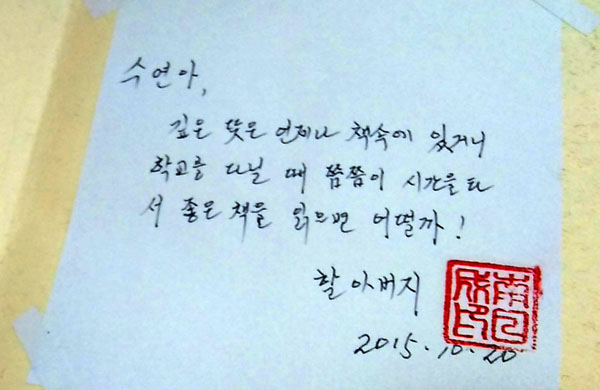 수연아,
깊은 뜻은 언제나 책속에 있거니
학교를 다닐 때 쯤쯤이 시간을 타
서 좋은 책을 읽으면 어떨까!
할아버지
2015.10.20